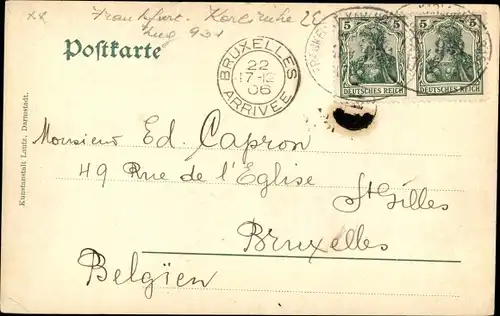 Frankfurt. Karlsruhe
Zug 931
Postkarte
BRUXELLES
22
17-12
06
ARRIVEE
5 5
5 5
DEUTSCHES REICH
DEUTSCHES REICH
Monsieur Ed. Capron
49 Rue de l'Eglise
St Gilles
Bruxelles
Belgïen
Kunstanstalt Lautz, Darmstadt.